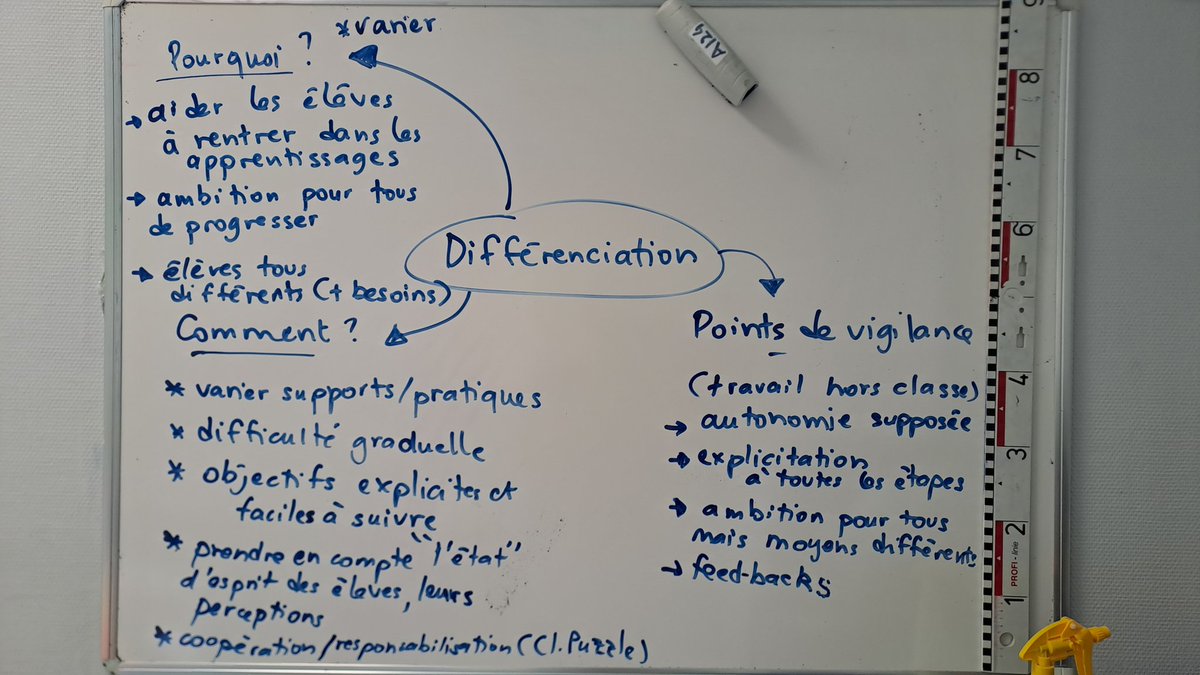 *varier
Pourquoi ?
→ aider les élèves
à rentrer dans les
apprentissages
→ ambition pour tous
de progresser
→ élèves tous
différents (+ besoins)
Différenciation
Comment ?
* varier supports/pratiques
* difficulté graduelle
* objectifs explicites et
faciles à suivre
* prendre en compte "l'état"
d'esprit des élèves, leurs
perceptions
* coopération/responsabilisation (Cl. Puzzle)
Points de vigilance
(travail hors classe)
→ autonomie supposée
→ explicitation
à toutes les étapes
→ ambition pour tous
mais moyens différents
→ feed-backs
A124
8
7
6
4
3
2
1
PROFI-linie